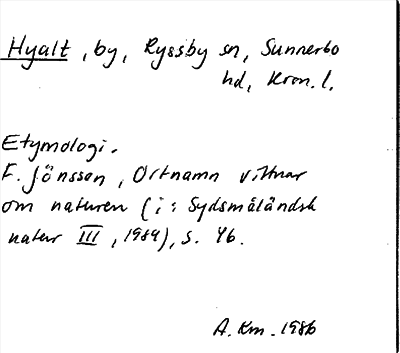 Hyalt, by, Ryssby sn, Sunnerbo
hd, Kron. l.
Etymologi.
F. Jönsson, Ortnamn vittnar
om naturen (i: Sydsmåländsk
natur III, 1984), s. 46.
A. Km. 1986